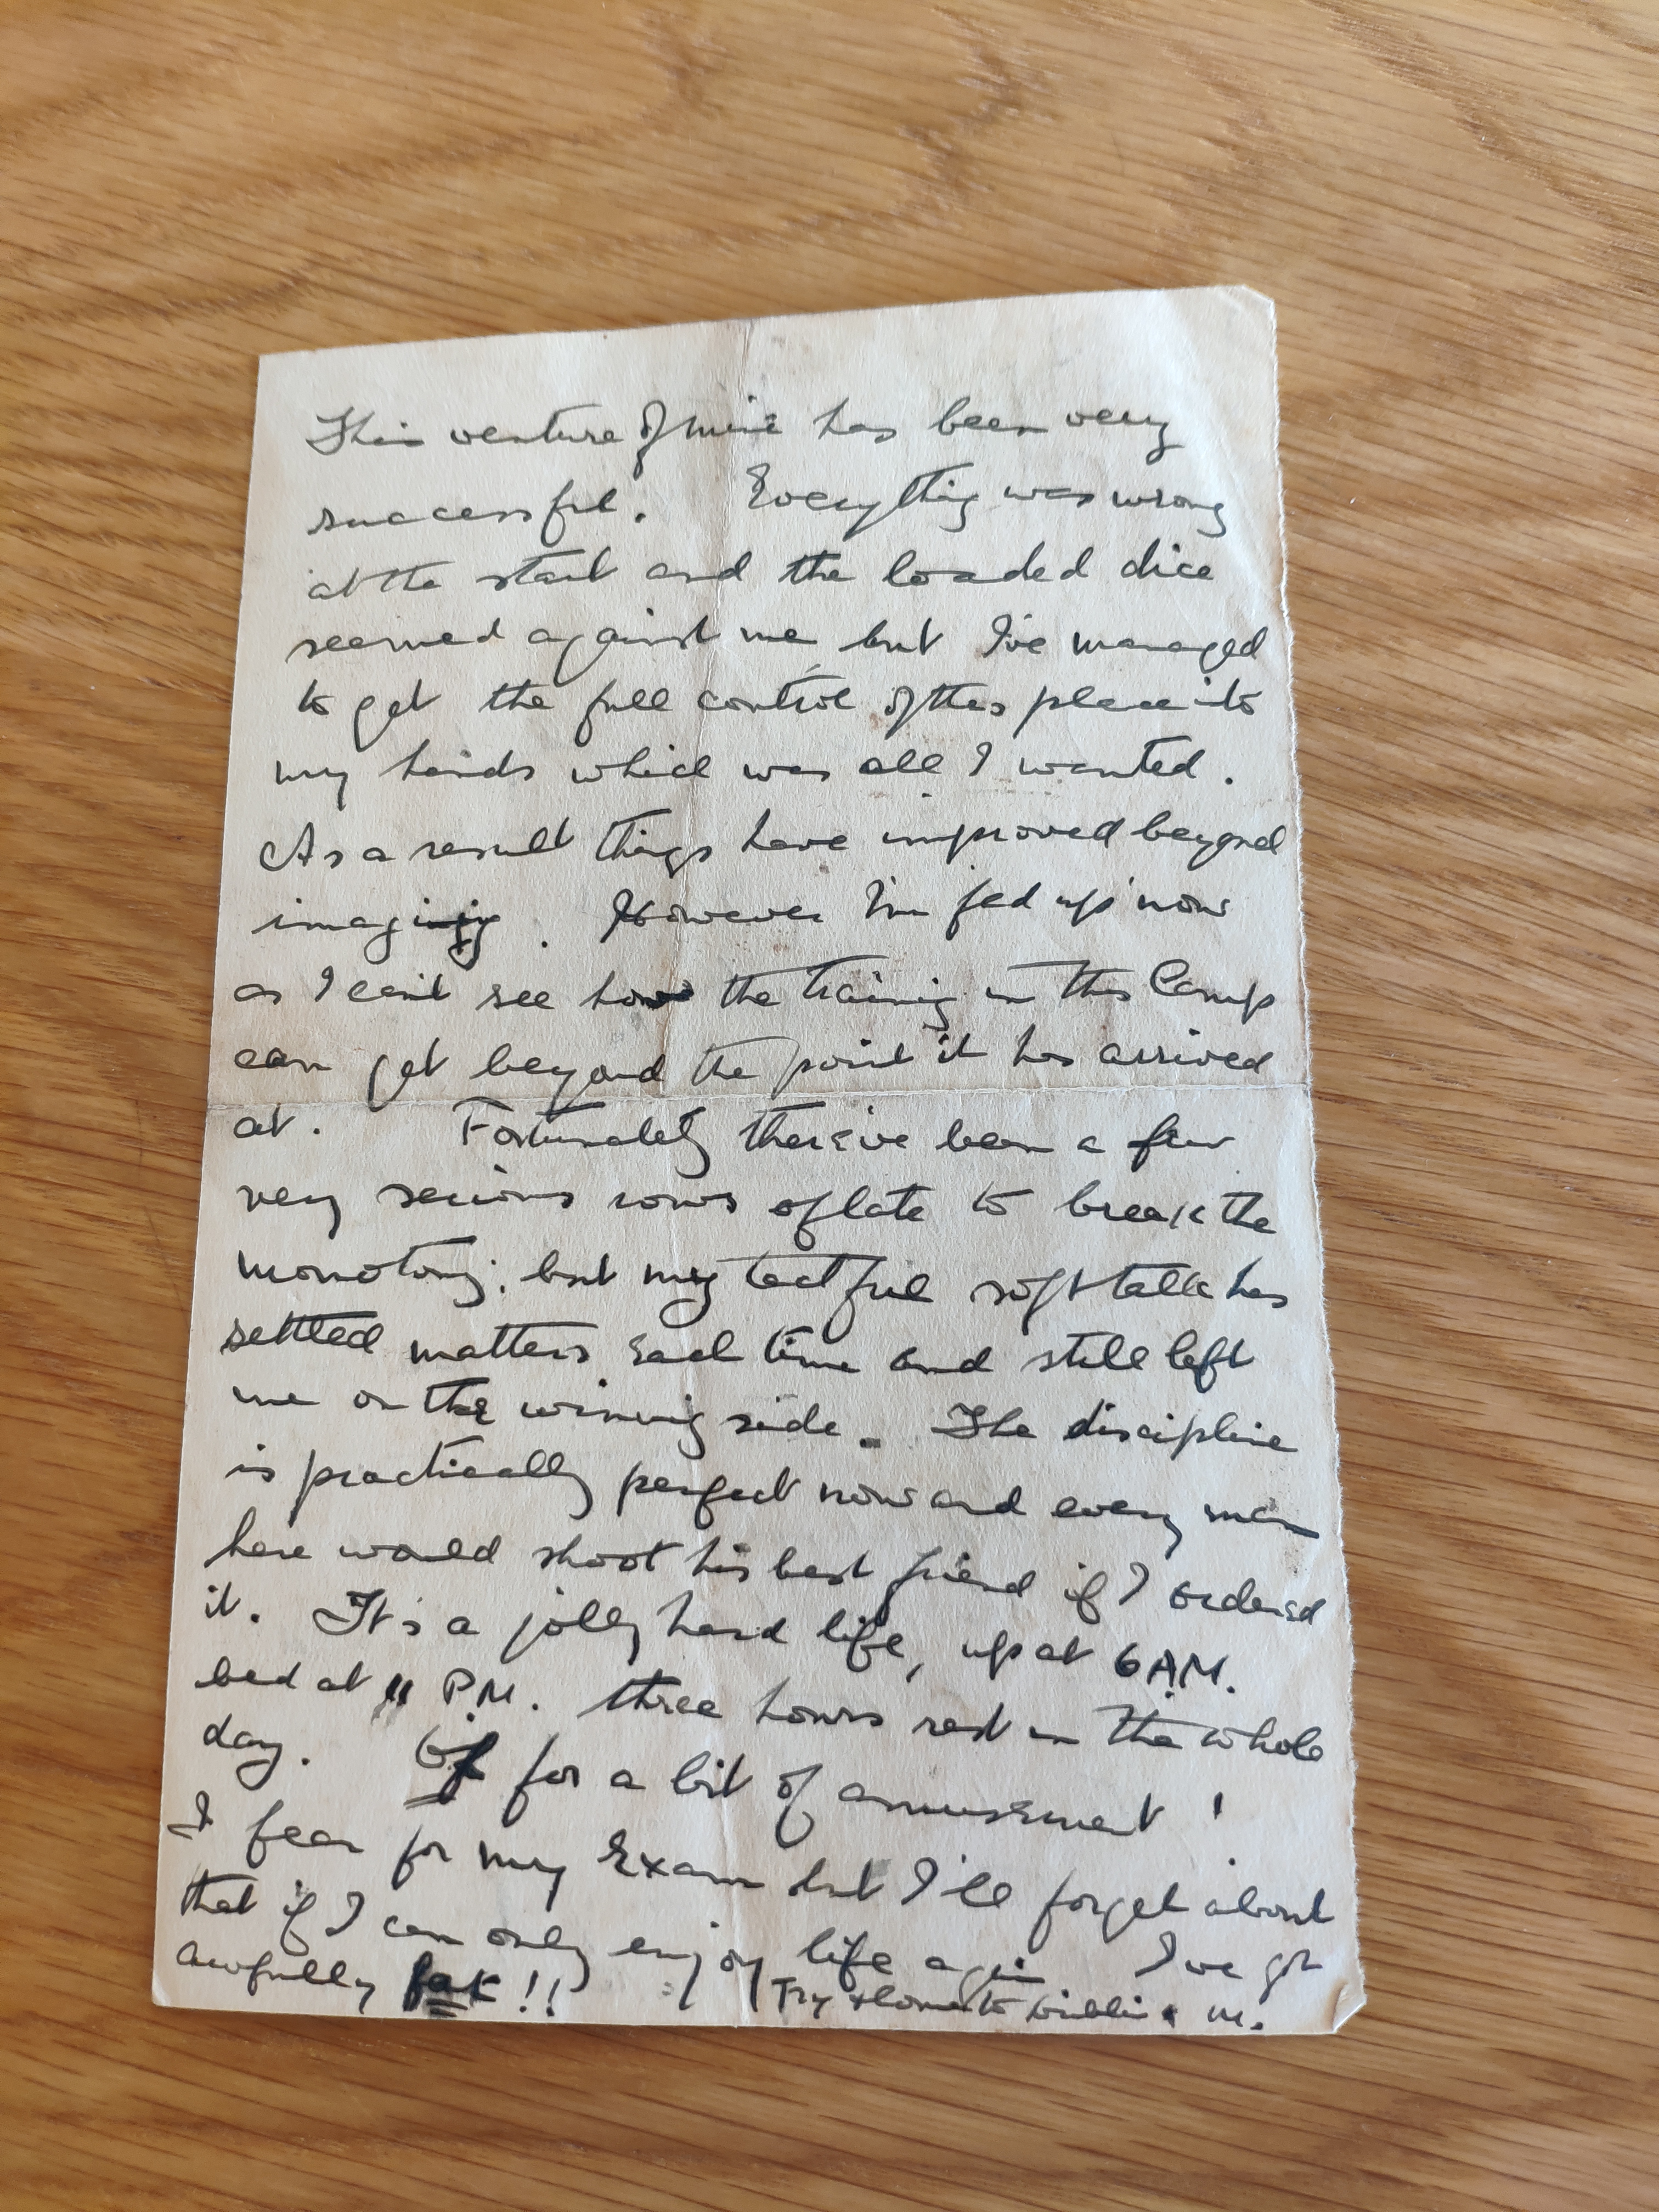 This venture of mine has been very
successful. Everything was wrong
at the start and the loaded dice
seemed against me but I've managed
to get the full control of this place into
my hands which was all I wanted.
As a result things have improved beyond
imaging. However I'm fed up now
as I can't see how the training in this Camp
can get beyond the point it has arrived
at. Fortunately there've been a few
very serious rows of late to break the
monotony; but my tactful soft talk has
settled matters each time and still left
me on the winning side. The discipline
is practically perfect now and every man
here would shoot his best friend if I ordered
it. It's a jolly hard life, up at 6 AM.
bed at 11 P.M. three hours rest in the whole
day. for a bit of amusement!
I fear for my Exam but I'll forget about
that if I can only enjoy life again I've got
awfully fat!! Try & come to Dublin. M.